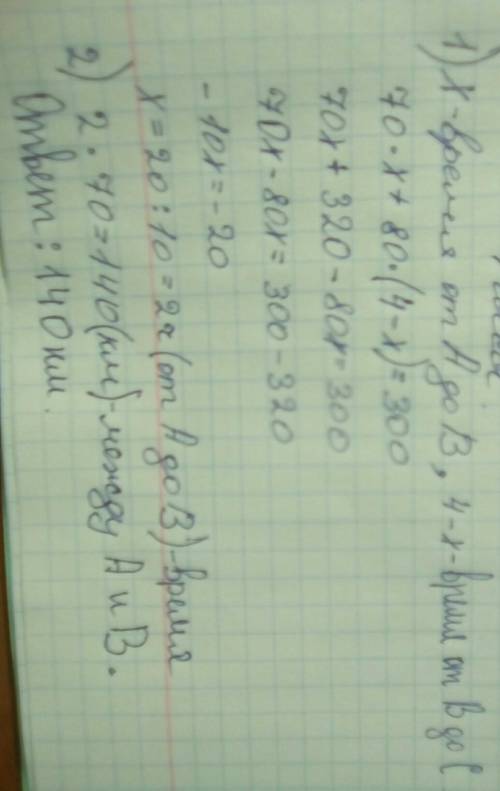 1) х-время от А до В, 4-х-время от В до С
70·х+80·(4-х)=300
70х+320-80х=300
70х-80х=300-320
-10х=-20
х=20:10=2ч(от А до В)-время
2) 2·70=140(км)-между А и В.
Ответ: 140 км.